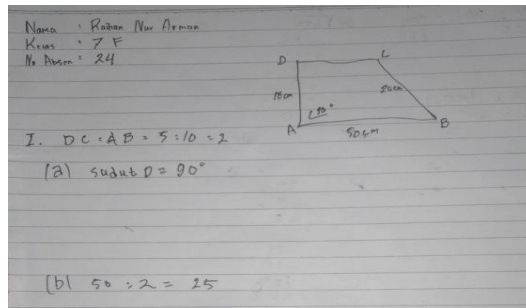 Nama : Raihan Nur Arman
Kelas : 7 F
No Absen : 24
D
C
18cm
20cm
90°
A
B
50cm
I. DC : AB = 5 : 10 = 2
(a) sudut D = 90°
(b) 50 : 2 = 25